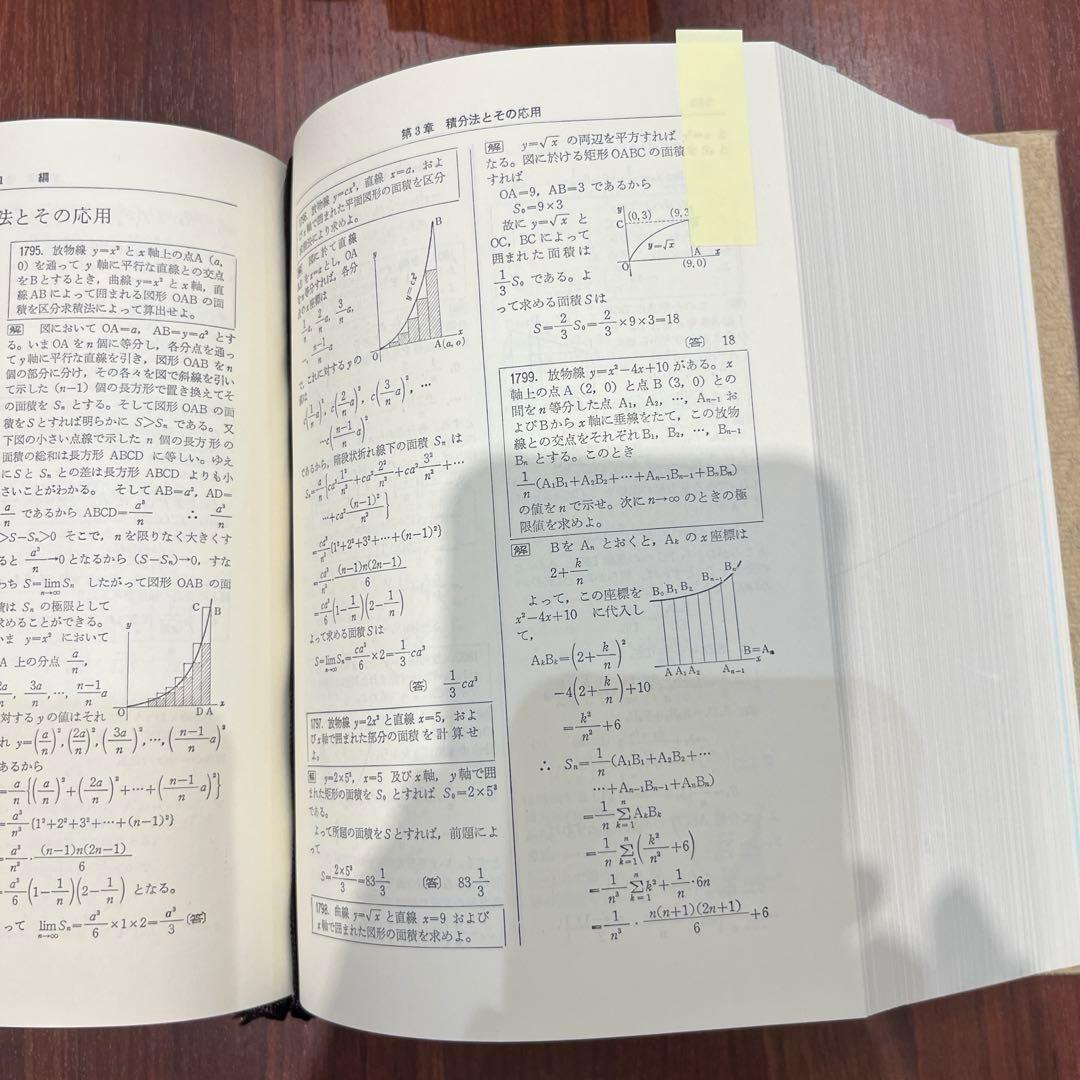 綱
法とその応用
1795. 放物線 y=x² と x 軸上の点A (a,
0) を通って y 軸に平行な直線との交点
をBとするとき，曲線 y=x² と x 軸，直
線ABによって囲まれる図形 OAB の面
積を区分求積法によって算出せよ。
解 図において OA=a，AB=y=a² とす
る。いま OA を n 個に等分し，各分点を通っ
て y 軸に平行な直線を引き，図形 OAB を n
個の部分に分け，その各々を図で斜線を引い
て示した (n−1) 個の長方形で置き換えてそ
の面積を Sn とする。そして図形 OAB の面
積をSとすれば明らかに S>Sn である。又
下図の小さい点線で示した n 個の長方形の
面積の総和は長方形 ABCD に等しい。ゆえ
にSと Sn との差は長方形 ABCD よりも小
さいことがわかる。 そして AB=a²，AD=
a/n であるから ABCD=a³/n ∴ a³/n
>S−Sn>0 そこで，n を限りなく大きくす
ると a³/n→0 となるから (S−Sn)→0，すな
わち S=lim Sn n→∞ したがって図形 OAB の面
積は Sn の極限として
求めることができる。
いま y=x² において
A 上の分点 a/n，
2a/n，3a/n，…，n−1/n a
対する y の値はそれ
y
C B
O D A x
れ y=(a/n)²，(2a/n)²，(3a/n)²，…，(n−1/n a)²
あるから
=a/n{(a/n)²+(2a/n)²+…+(n−1/n a)²}
=a³/n³{1²+2²+3²+…+(n−1)²}
=a³/n³·(n−1)n(2n−1)/6
=a³/6(1−1/n)(2−1/n) となる。
って lim Sn n→∞=a³/6×1×2=a³/3 (答)
第3章 積分法とその応用
1796. 放物線 y=cx²，直線 x=a，およ
び x 軸で囲まれた平面図形の面積を区分
求積法により求めよ。
解 図に於て直線
y
B
y=cx²
O A(a, o) x
1/n a，2/n a，3/n a，
…，n−1/n a
で，これに対する y の
c(1/n a)²，c(2/n a)²，c(3/n a)²，…
…c(n−1/n a)²
であるから，階段状折れ線下の面積 Sn は
Sn=a/n{ca²1²/n²+ca²2²/n²+ca²3²/n²+…
…+ca²(n−1)²/n²}
=ca³/n³{1²+2²+3²+…+(n−1)²}
=ca³/n³·(n−1)n(2n−1)/6
=ca³/6(1−1/n)(2−1/n)
よって求める面積Sは
S=lim Sn n→∞=ca³/6×2=1/3 ca³
(答) 1/3 ca³
1797. 放物線 y=2x² と直線 x=5，およ
び x 軸で囲まれた部分の面積を計算せ
よ。
解 y=2×5²，x=5 及び x 軸，y 軸で囲
まれた矩形の面積を S₀ とすれば S₀=2×5³
である。
よって所題の面積をSとすれば，前題によ
って
S=2×5³/3=83 1/3 (答) 83 1/3
1798. 曲線 y=√x と直線 x=9 および
x 軸で囲まれた図形の面積を求めよ。
解 y=√x の両辺を平方すれば
なる。図に於ける矩形 OABC の面積
すれば
OA=9，AB=3 であるから
S₀=9×3
故に y=√x と
OC，BC によって
囲まれた面積は
1/3 S₀ である。よ
って求める面積Sは
y
C (0, 3) (9, 3
y=√x
O A x
(9, 0)
S=2/3 S₀=2/3×9×3=18
(答) 18
1799. 放物線 y=x²−4x+10 がある。x
軸上の点 A (2, 0) と点 B (3, 0) との
間を n 等分した点 A₁，A₂，…，An−1 お
よびBから x 軸に垂線をたて，この放物
線との交点をそれぞれ B₁，B₂，…，Bn−1
Bn とする。このとき
1/n(A₁B₁+A₂B₂+…+An−1Bn−1+BnBn)
の値を n で示せ。次に n→∞ のときの極
限値を求めよ。
解 Bを An とおくと，Ak の x 座標は
2+k/n
よって，この座標を
x²−4x+10 に代入し
て，
B₀ B₁ B₂ Bn−1 Bn
A A₁ A₂ An−1 B=An x
AkBk=(2+k/n)²
−4(2+k/n)+10
=k²/n²+6
∴ Sn=1/n(A₁B₁+A₂B₂+…
…+An−1Bn−1+AnBn)
=1/n Σ k=1 n AkBk
=1/n Σ k=1 n (k²/n²+6)
=1/n³ Σ k=1 n k²+1/n·6n
=1/n³·n(n+1)(2n+1)/6+6